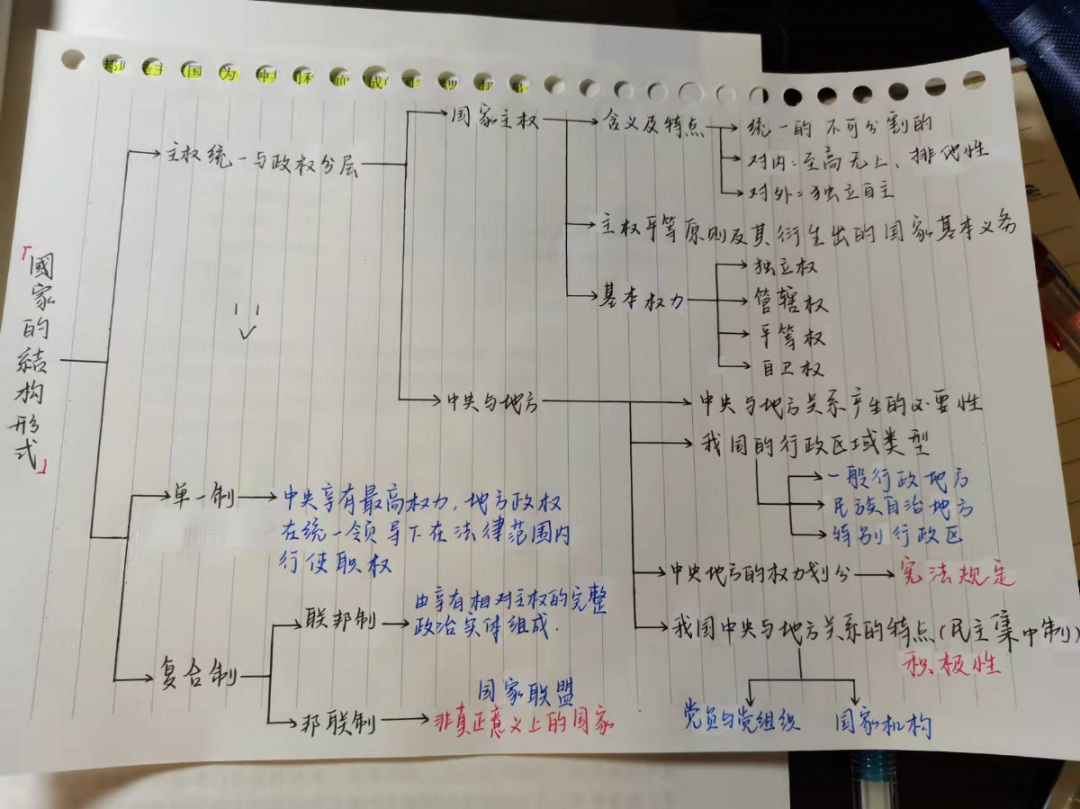 「國家的結构形式」
主权统一与政权分层
国家主权
含义及特点
统一的 不可分割的
对内：至高无上、排他性
对外：独立自主
主权平等原则及其衍生出的国家基本义务
基本权力
独立权
管辖权
平等权
自卫权
中央与地方
中央与地方关系产生的必要性
我国的行政区域类型
一般行政地方
民族自治地方
特别行政区
中央地方的权力划分
宪法规定
我国中央与地方关系的特点(民主集中制)
积极性
党员与党组织
国家机构
单一制
中央享有最高权力，地方政权
在统一领导下在法律范围内
行使职权
复合制
联邦制
由享有相对主权的完整
政治实体组成.
邦联制
国家联盟
非真正意义上的国家